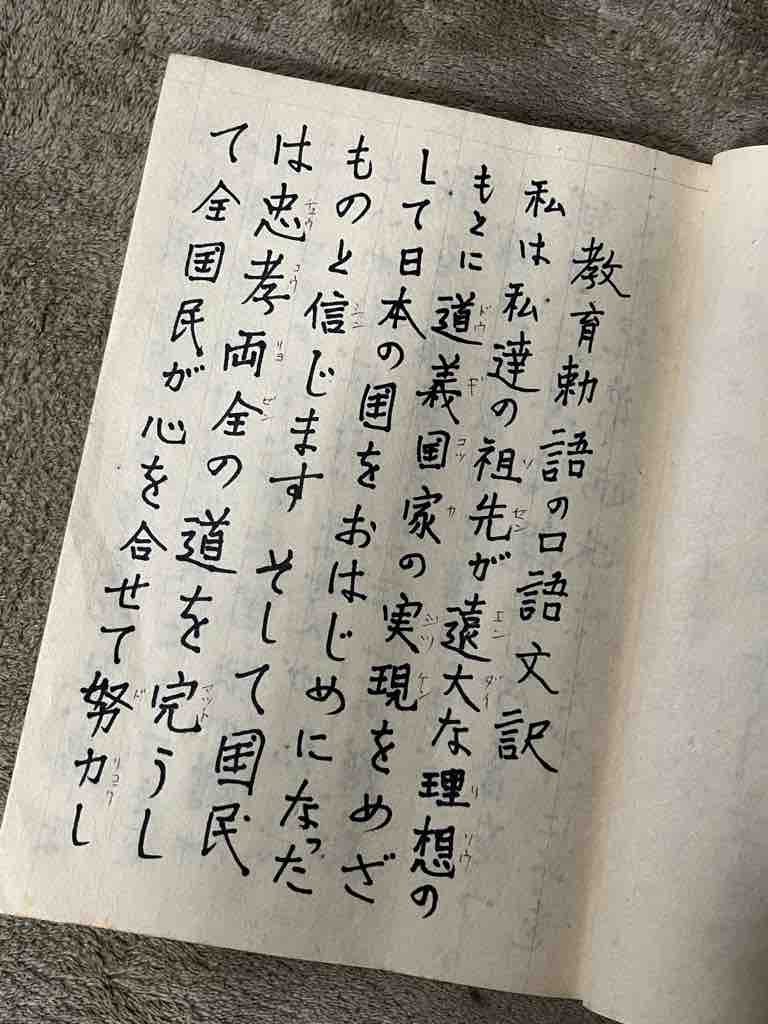 教育勅語の口語文訳
私は私達の祖先が遠大な理想の
もとに道義国家の実現をめざ
して日本の国をおはじめになった
ものと信じます そして国民
は忠孝両全の道を完うし
て全国民が心を合せて努力し